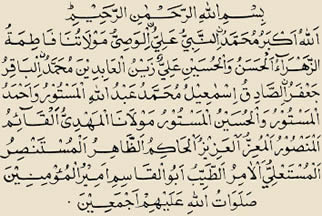 بِسْمِ اللهِ الرَّحْمٰنِ الرَّحِيْمِ
اَللهُ اَكْبَرُ مُحَمَّدُ النَّبِيُّ عَلِيُّ الْوَصِيُّ مَوْلَاتُنَا فَاطِمَةُ
الزَّهْرَاءُ الْحَسَنُ وَالْحُسَيْنُ عَلِيُّ زَيْنُ الْعَابِدِيْنَ مُحَمَّدُ الْبَاقِرُ
جَعْفَرُ الصَّادِقُ اِسْمٰعِيْلُ مُحَمَّدُ عَبْدُ اللهِ الْمَسْتُوْرُ وَاَحْمَدُ
الْمَسْتُوْرُ وَالْحُسَيْنُ الْمَسْتُوْرُ مَوْلَانَا الْمَهْدِيُّ الْقَائِمُ
الْمَنْصُوْرُ الْمُعِزُّ الْعَزِيْزُ الْحَاكِمُ الظَّاهِرُ الْمُسْتَنْصِرُ
الْمُسْتَعْلِيُّ الْآمِرُ الطَّيِّبُ اَبُو الْقَاسِمِ اَمِيْرُ الْمُؤْمِنِيْنَ
صَلَوَاتُ اللهِ عَلَيْهِمْ اَجْمَعِيْنَ .